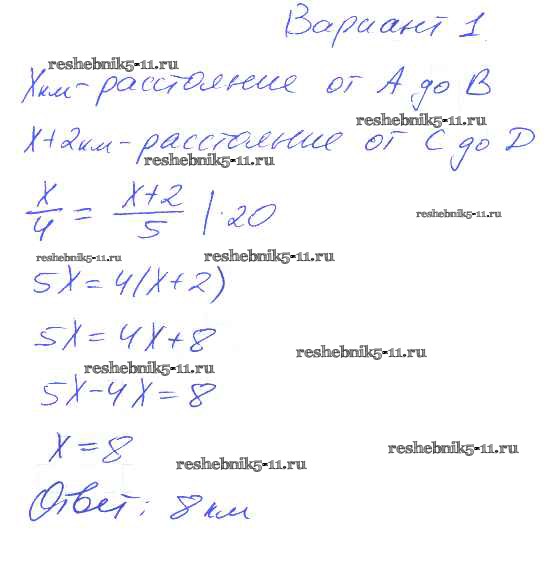 Вариант 1.
reshebnik5-11.ru
Xкм - расстояние от А до В
reshebnik5-11.ru
X+2км - расстояние от С до D
reshebnik5-11.ru
X/4 = X+2/5 | · 20
reshebnik5-11.ru
reshebnik5-11.ru reshebnik5-11.ru
5X = 4(X+2)
5X = 4X+8
reshebnik5-11.ru
reshebnik5-11.ru
5X-4X=8
X = 8
reshebnik5-11.ru
reshebnik5-11.ru
Ответ: 8 км